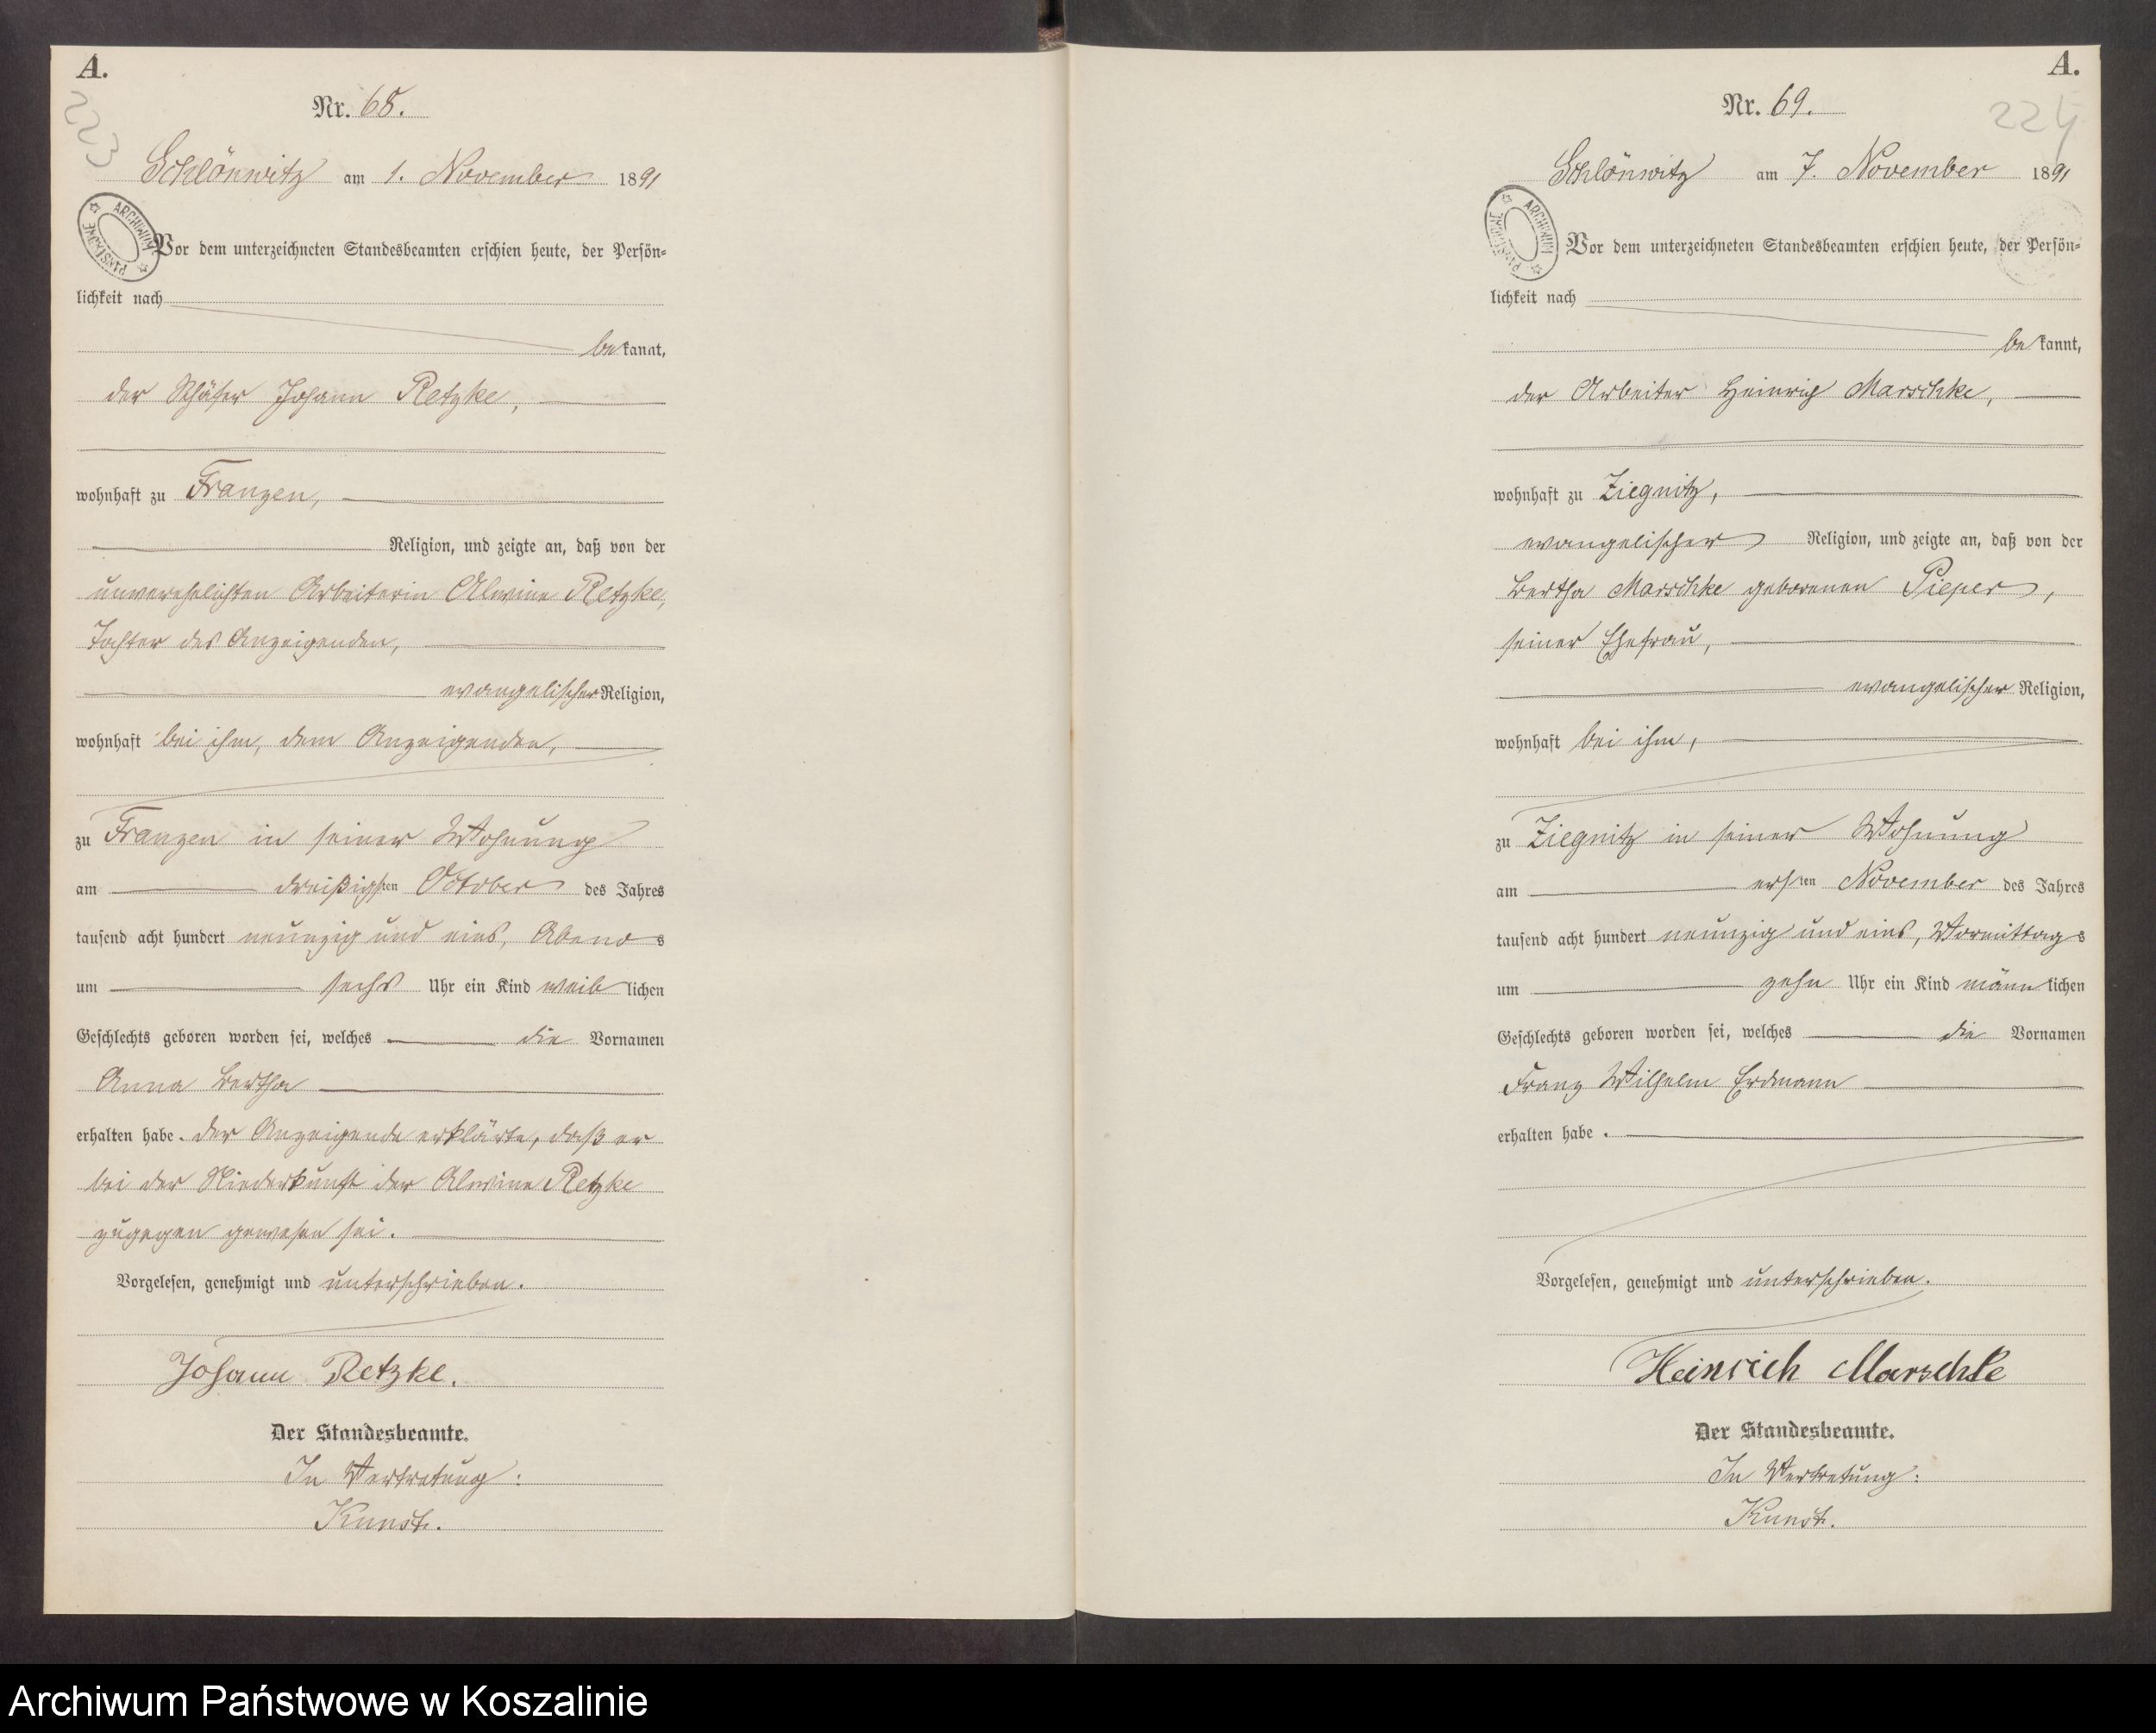 A.
223
Nr. 68.
Schlönwitz am 1. November 1891
ARCHIWUM PAŃSTWOWE
Vor dem unterzeichneten Standesbeamten erschien heute, der Persön=
lichkeit nach
bekannt,
der Schäfer Johann Retzke,
wohnhaft zu Franzen,
Religion, und zeigte an, daß von der
unverehelichten Arbeiterin Alwine Retzke,
Tochter des Anzeigenden,
evangelischer Religion,
wohnhaft bei ihm, dem Anzeigenden,
zu Franzen in seiner Wohnung
am dreißigsten October des Jahres
tausend acht hundert neunzig und eins, Abends
um sechs Uhr ein Kind weiblichen
Geschlechts geboren worden sei, welches die Vornamen
Anna Bertha
erhalten habe. Der Anzeigende erklärte, daß er
bei der Niederkunft der Alwine Retzke
zugegen gewesen sei.
Vorgelesen, genehmigt und unterschrieben.
Johann Retzke.
Der Standesbeamte.
In Vertretung:
Kunst.
A.
224
Nr. 69.
Schlönwitz am 7. November 1891
ARCHIWUM PAŃSTWOWE
Vor dem unterzeichneten Standesbeamten erschien heute, der Persön=
lichkeit nach
bekannt,
der Arbeiter Heinrich Marschke,
wohnhaft zu Ziegnitz,
evangelischer Religion, und zeigte an, daß von der
Bertha Marschke geborenen Pieper,
seiner Ehefrau,
evangelischer Religion,
wohnhaft bei ihm,
zu Ziegnitz in seiner Wohnung
am ersten November des Jahres
tausend acht hundert neunzig und eins, Vormittags
um zehn Uhr ein Kind männlichen
Geschlechts geboren worden sei, welches die Vornamen
Franz Wilhelm Erdmann
erhalten habe.
Vorgelesen, genehmigt und unterschrieben.
Heinrich Marschke
Der Standesbeamte.
In Vertretung:
Kunst.
Archiwum Państwowe w Koszalinie